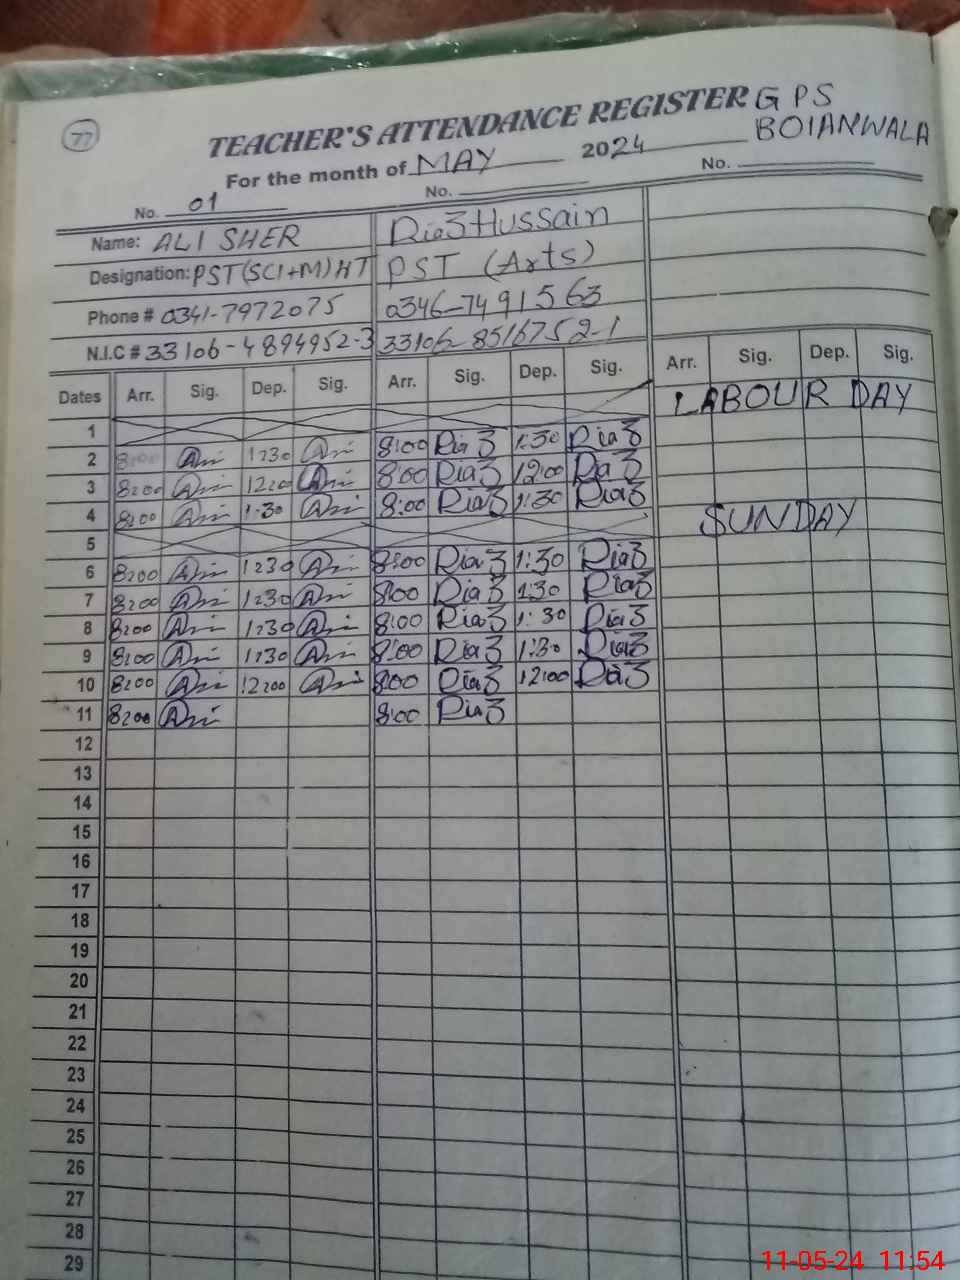 77
TEACHER'S ATTENDANCE REGISTER GPS
BOIANWALA
For the month of MAY 2024
No. 01 No. No.
Name: ALI SHER Riaz Hussain
Designation: PST(SCI+M)HT PST (Arts)
Phone # 0341-7972075 0346-7491563
N.I.C # 33106-4894952-3 33106-8516752-1
Dates Arr. Sig. Dep. Sig. Arr. Sig. Dep. Sig. Arr. Sig. Dep. Sig.
1 LABOUR DAY
2 8:00 1:30 8:00 Riaz 1:30 Riaz
3 8:00 12:00 8:00 Riaz 12:00 Riaz
4 8:00 1:30 8:00 Riaz 1:30 Riaz
5 SUNDAY
6 8:00 1:30 8:00 Riaz 1:30 Riaz
7 8:00 1:30 8:00 Riaz 1:30 Riaz
8 8:00 1:30 8:00 Riaz 1:30 Riaz
9 8:00 1:30 8:00 Riaz 1:30 Riaz
10 8:00 12:00 8:00 Riaz 12:00 Riaz
11 8:00 8:00 Riaz
12
13
14
15
16
17
18
19
20
21
22
23
24
25
26
27
28
29
11-05-24 11:54